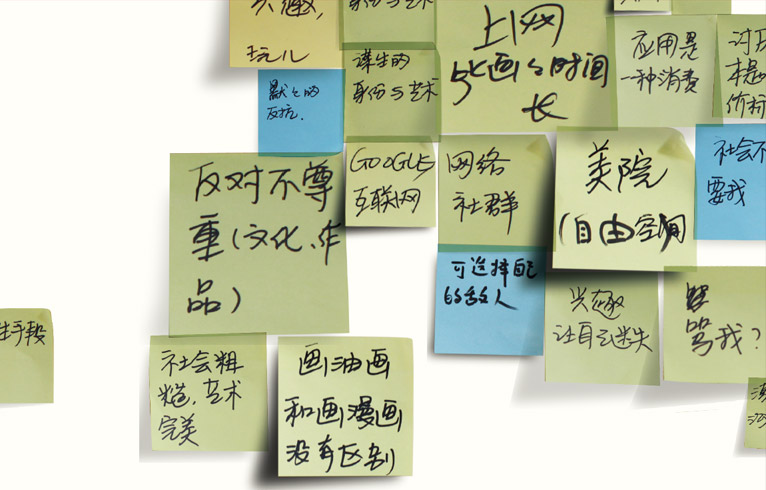 玩儿
身份与艺术
谋生的
身份与艺术
默默的
反抗.
上网
与画画时间
长
应用是
一种消费
讨厌
价标
社会不
要我
GOOGLE
互联网
网络
社群
美院
(自由空间)
反对不尊
重(文化、作
品)
可选择自己
的敌人
兴趣
让自己迷失
骂我?
生手段
社会粗
糙.艺术
完美
画油画
和画漫画
没有区别